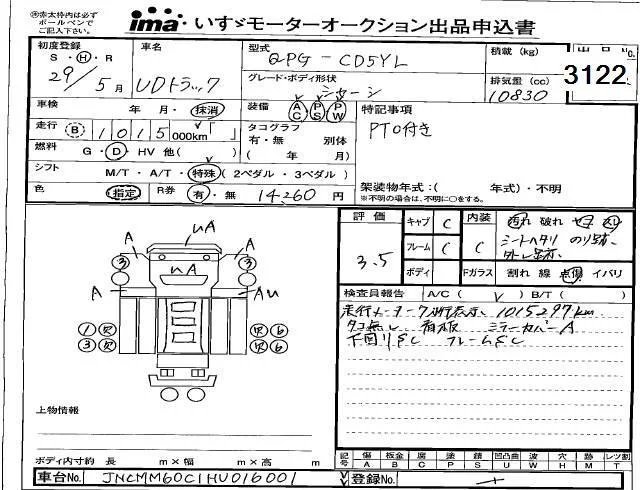 ㊟赤太枠内は必ず
ボールペンで
ご記入下さい。
ima いすゞモーターオークション出品申込書
初度登録
S・H・R
29/5月
車名
UDトラック
型式
QPG-CD5YL
積載 (kg)
出口No.
3122
グレード・ボディ形状
シャーシ
排気量 (cc)
10830
車検 年 月・抹消
装備 AC PS PW
特記事項
PTO付き
走行 B 1015 000km
タコグラフ
有・無 別体
( 年 月)
燃料 G・D・HV 他( )
シフト M/T・A/T・特殊 (2ペダル・3ペダル)
架装物年式:( 年式)・不明
※不明の場合は、不明に○をする。
色 指定 R券 有・無 14,260円
評価
3.5
キャブ C
フレーム C
ボディ
内装 C
汚れ 破れ セコ
シートヘタリ のり跡、
外し跡、
Fガラス 割れ 線 点傷 イバリ
uA
A A
3 3
uA
A Au
1 欠 欠 6
3 欠 欠 6
検査員報告 A/C( ) B/T( )
走行メーター 表示 1015297km
タコ無し 看板 ミラーカバーA
下回りSC フレームSC
上物情報
ボディ内寸約 長 m×幅 m×高 m
記号 傷A 板金B 腐C 塗P 錆S 凹凸曲U 波W 穴H 跡M レンズ割T
車台No. JNCMM60C1HU016001
登録No. —